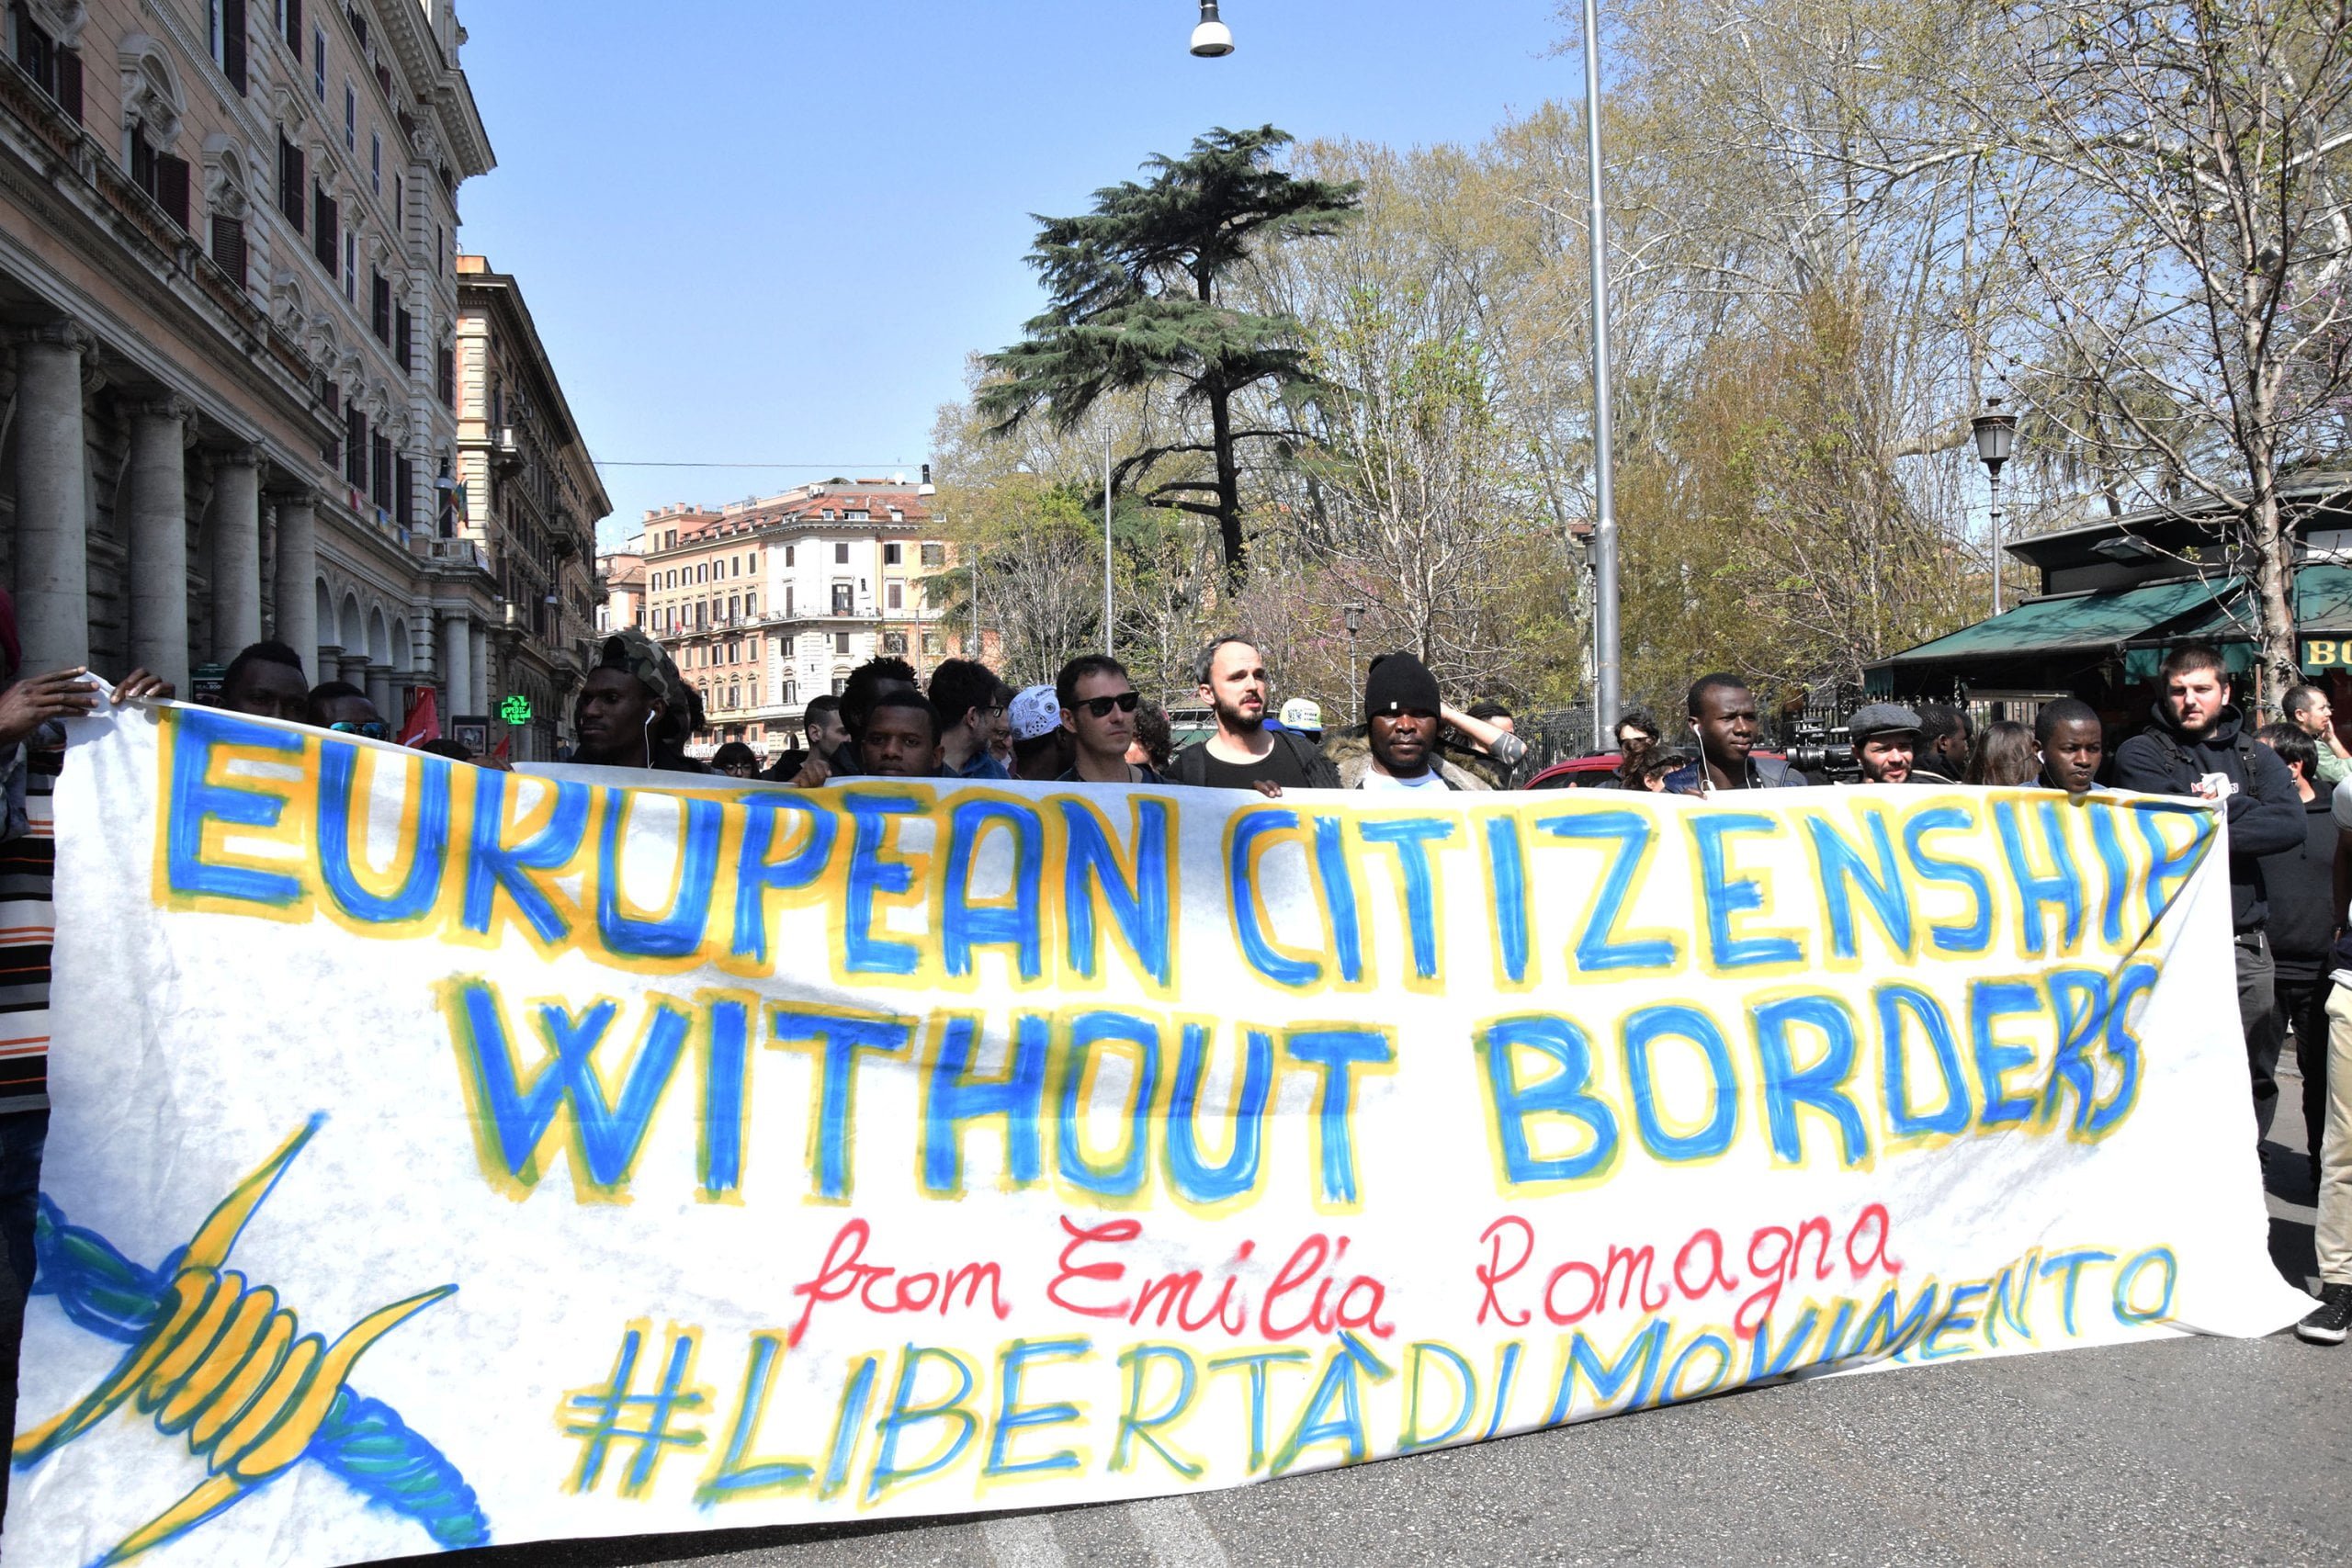 EUROPEAN CITIZENSHIP
WITHOUT BORDERS
from Emilia Romagna
#LIBERTÀ DI MOVIMENTO